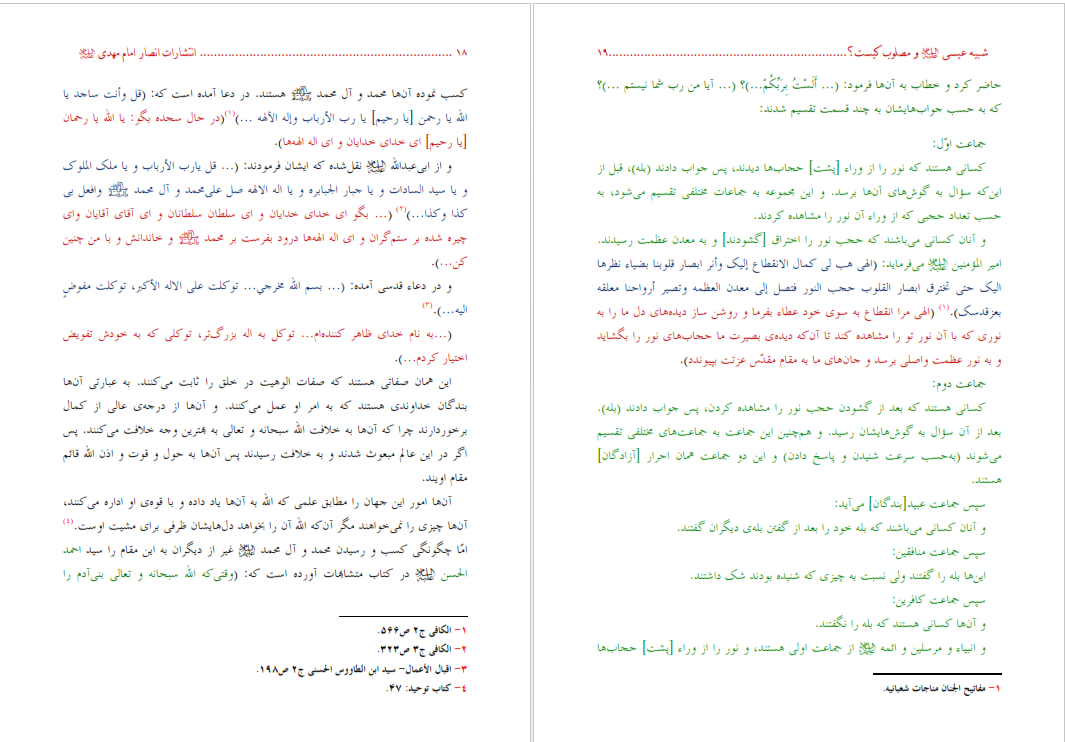 ۱۸ ........................................................................ انتشارات انصار امام مهدی علیه السلام
کسب نموده آن‌ها محمد و آل محمد علیهم السلام هستند. در دعا آمده است که: (قل وأنت ساجد یا
الله یا رحمن [یا رحیم] یا رب الأرباب وإله الآلهه ...)(۱)(در حال سجده بگو: یا الله یا رحمان
[یا رحیم] ای خدای خدایان و ای اله الهه‌ها).
و از ابی‌عبدالله علیه السلام نقل‌شده که ایشان فرمودند: (... قل یارب الأرباب و یا ملک الملوک
و یا سید السادات و یا جبار الجبابره و یا اله الالهه صل علی‌محمد و آل محمد علیهم السلام وافعل بی
کذا وکذا...)(۲) (... بگو ای خدای خدایان و ای سلطان سلطانان و ای آقای آقایان وای
چیره شده بر ستم‌گران و ای اله الهه‌ها درود بفرست بر محمد و خاندانش و با من چنین
کن...).
و در دعاء قدسی آمده: (... بسم الله مخرجي... توکلت علی الاله الأکبر، توکلت مفوضٍ
الیه...).(۳)
(...به نام خدای ظاهر کننده‌ام... توکل به اله بزرگ‌تر، توکلی که به خودش تفویض
اختیار کردم...).
این همان صفاتی هستند که صفات الوهیت در خلق را ثابت می‌کنند. به عبارتی آن‌ها
بندگان خداوندی هستند که به امر او عمل می‌کنند. و آن‌ها از درجه‌ی عالی از کمال
برخوردارند چرا که آن‌ها به خلافت الله سبحانه و تعالی به بهترین وجه خلافت می‌کنند. پس
اگر در این عالم مبعوث شدند و به خلافت رسیدند پس آن‌ها به حول و قوت و اذن الله قائم
مقام اویند.
آن‌ها امور این جهان را مطابق علمی که الله به آن‌ها یاد داده و با قوه‌ی او اداره می‌کنند،
آن‌ها چیزی را نمی‌خواهند مگر آن‌که الله آن را بخواهد دل‌هایشان ظرفی برای مشیت اوست.(٤)
امّا چگونگی کسب و رسیدن محمد و آل محمد علیهم السلام غیر از دیگران به این مقام را سید احمد
الحسن علیه السلام در کتاب متشابهات آورده است که: (وقتی‌که الله سبحانه و تعالی بنی‌آدم را
۱- الکافی ج۲ ص۵۶۶.
۲- الکافی ج۳ ص۳۲۳.
۳- اقبال الأعمال- سید ابن الطاووس الحسنی ج۲ ص۱۹۸.
٤- کتاب توحید: ۴۷.
شبیه عیسی علیه السلام و مصلوب کیست؟....................................................................۱۹
حاضر کرد و خطاب به آن‌ها فرمود: (... أَلَسْتُ بِرَبِّكُمْ...)؟ (... آیا من رب شما نیستم ...)؟
که به حسب جواب‌هایشان به چند قسمت تقسیم شدند:
جماعت اوّل:
کسانی هستند که نور را از وراء [پشت] حجاب‌ها دیدند، پس جواب دادند (بله)، قبل از
این‌که سؤال به گوش‌های آن‌ها برسد. و این مجموعه به جماعات مختلفی تقسیم می‌شود، به
حسب تعداد حجبی که از وراء آن نور را مشاهده کردند.
و آنان کسانی می‌باشند که حجب نور را اختراق [گشودند] و به معدن عظمت رسیدند.
امیر المؤمنین علیه السلام می‌فرماید: (الهی هب لی کمال الانقطاع إلیک وأنر ابصار قلوبنا بضیاء نظرها
الیک حتی تخترق ابصار القلوب حجب النور فتصل إلی معدن العظمه وتصیر أرواحنا معلقه
بعزقدسک).(۱) (الهی مرا انقطاع به سوی خود عطاء بفرما و روشن ساز دیده‌های دل ما را به
نوری که با آن نور تو را مشاهده کند تا آن‌که دیده‌ی بصیرت ما حجاب‌های نور را بگشاید
و به نور عظمت واصلی برسد و جان‌های ما به مقام مقدّس عزتت بپیوندد).
جماعت دوم:
کسانی هستند که بعد از گشودن حجب نور را مشاهده کردن، پس جواب دادند (بله).
بعد از آن سؤال به گوش‌هایشان رسید. و هم‌چنین این جماعت به جماعت‌های مختلفی تقسیم
می‌شوند (به‌حسب سرعت شنیدن و پاسخ دادن) و این دو جماعت همان احرار [آزادگان]
هستند.
سپس جماعت عبید[بندگان] می‌آید:
و آنان کسانی می‌باشند که بله خود را بعد از گفتن بله‌ی دیگران گفتند.
سپس جماعت منافقین:
این‌ها بله را گفتند ولی نسبت به چیزی که شنیده بودند شک داشتند.
سپس جماعت کافرین:
و آن‌ها کسانی هستند که بله را نگفتند.
و انبیاء و مرسلین و ائمه علیهم السلام از جماعت اولی هستند، و نور را از وراء [پشت] حجاب‌ها
۱- مفاتیح الجنان مناجات شعبانیه.